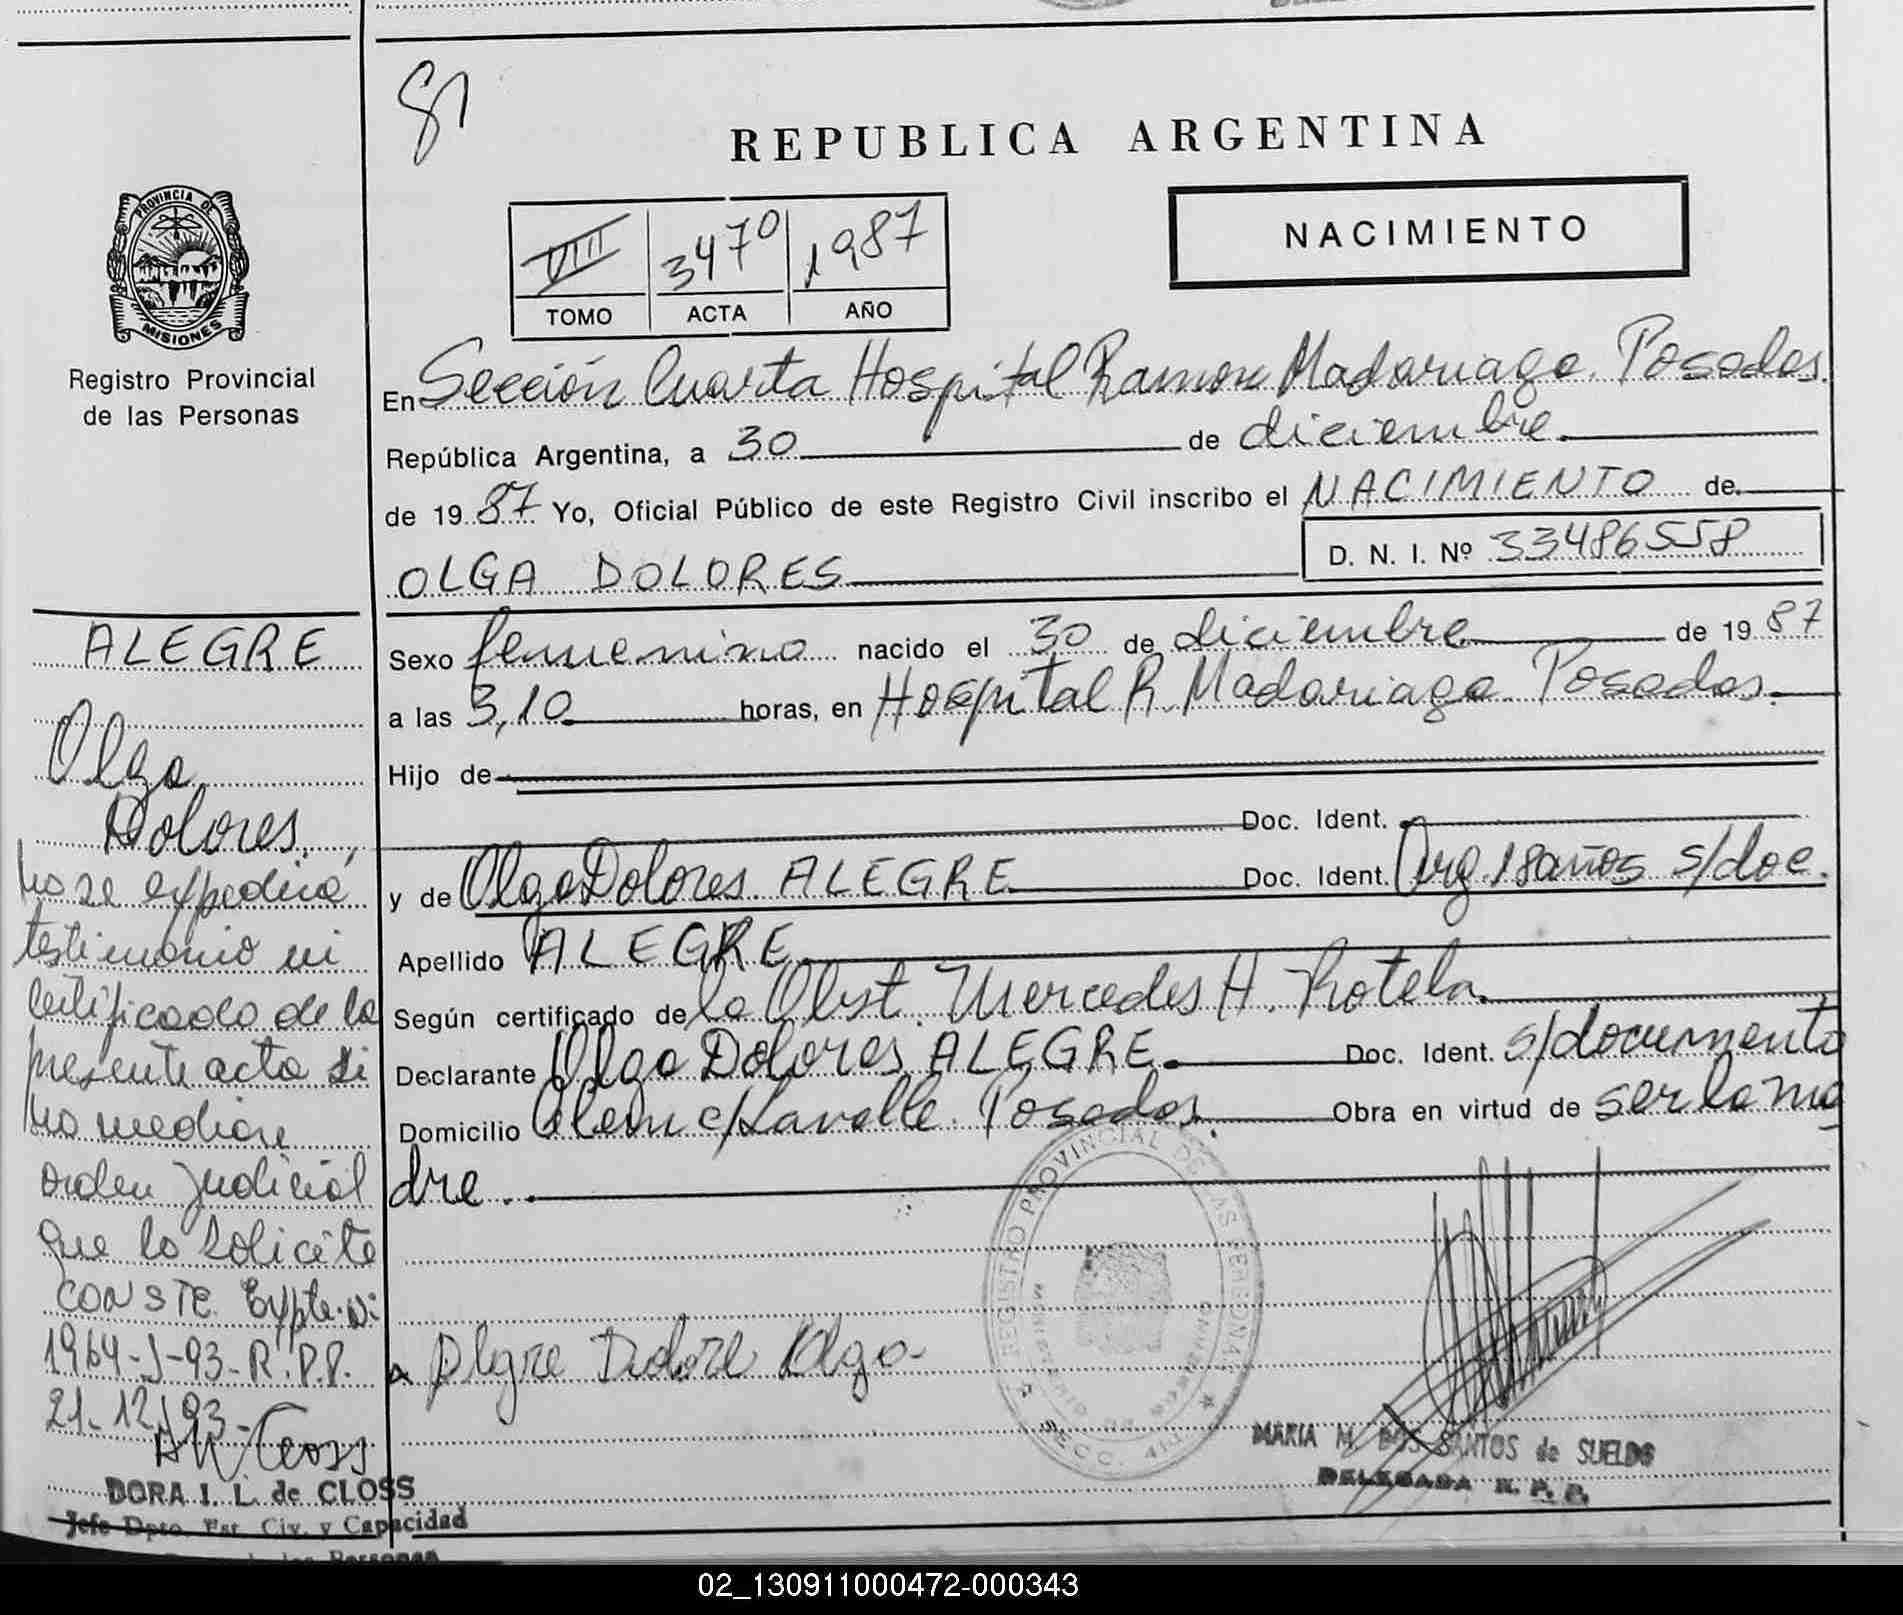 81
REPUBLICA ARGENTINA
PROVINCIA DE
MISIONES
VIII 3470 1987
TOMO ACTA AÑO
NACIMIENTO
Registro Provincial
de las Personas
En Sección Cuarta Hospital Ramon Madariaga. Posadas.
República Argentina, a 30 de diciembre
de 19 87 Yo, Oficial Público de este Registro Civil inscribo el NACIMIENTO de
OLGA DOLORES
D. N. I. Nº 33486558
Sexo femenino nacido el 30 de diciembre de 19 87
a las 3,10 horas, en Hospital R. Madariaga Posadas.
Hijo de
Doc. Ident.
y de Olga Dolores ALEGRE Doc. Ident. Arg. 18 años s/doc.
Apellido ALEGRE
Según certificado de la Obst. Mercedes H. Rotela.
Declarante Olga Dolores ALEGRE. Doc. Ident. s/documento
Domicilio Alem c/Lavalle. Posadas. Obra en virtud de ser la ma
dre.
Alegre Dolore Olga
REGISTRO PROVINCIAL DE LAS PERSONAS
SECC. 4ta
MARIA M. DOS SANTOS de SUELDO
DELEGADA R. P. P.
ALEGRE
Olga
Dolores.
No se expedirá
testimonio ni
certificado de la
presente acta si
no mediare
orden judicial
que lo solicite
CONSTE. Expte. Nº
1964-J-93-R.P.P.
21-12-93-
DORA I. L. de CLOSS
Jefe Dpto. Est. Civ. y Capacidad
las Personas
02_130911000472-000343